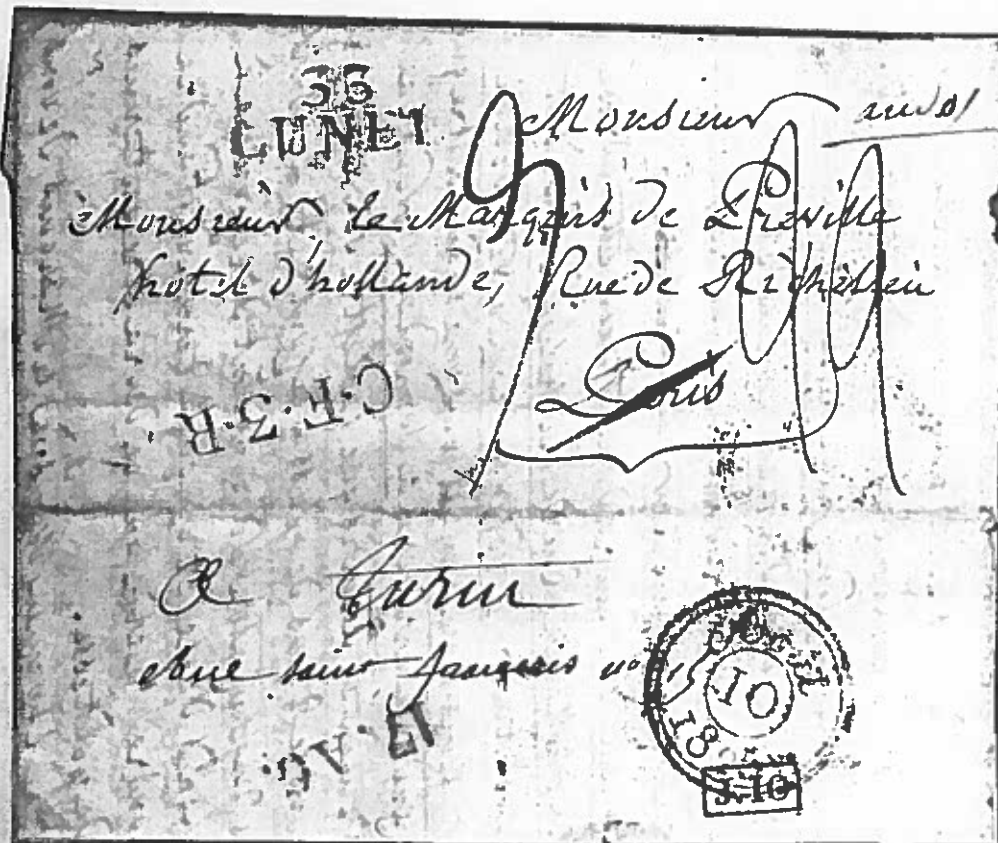 36
LUNEL
Monsieur
Monsieur, le Marquis de Preville
hotel d'hollande, Rue de Richelieu
Paris
C.F.3.R
A Turin
Rue saint françois n°
18
10
J.10